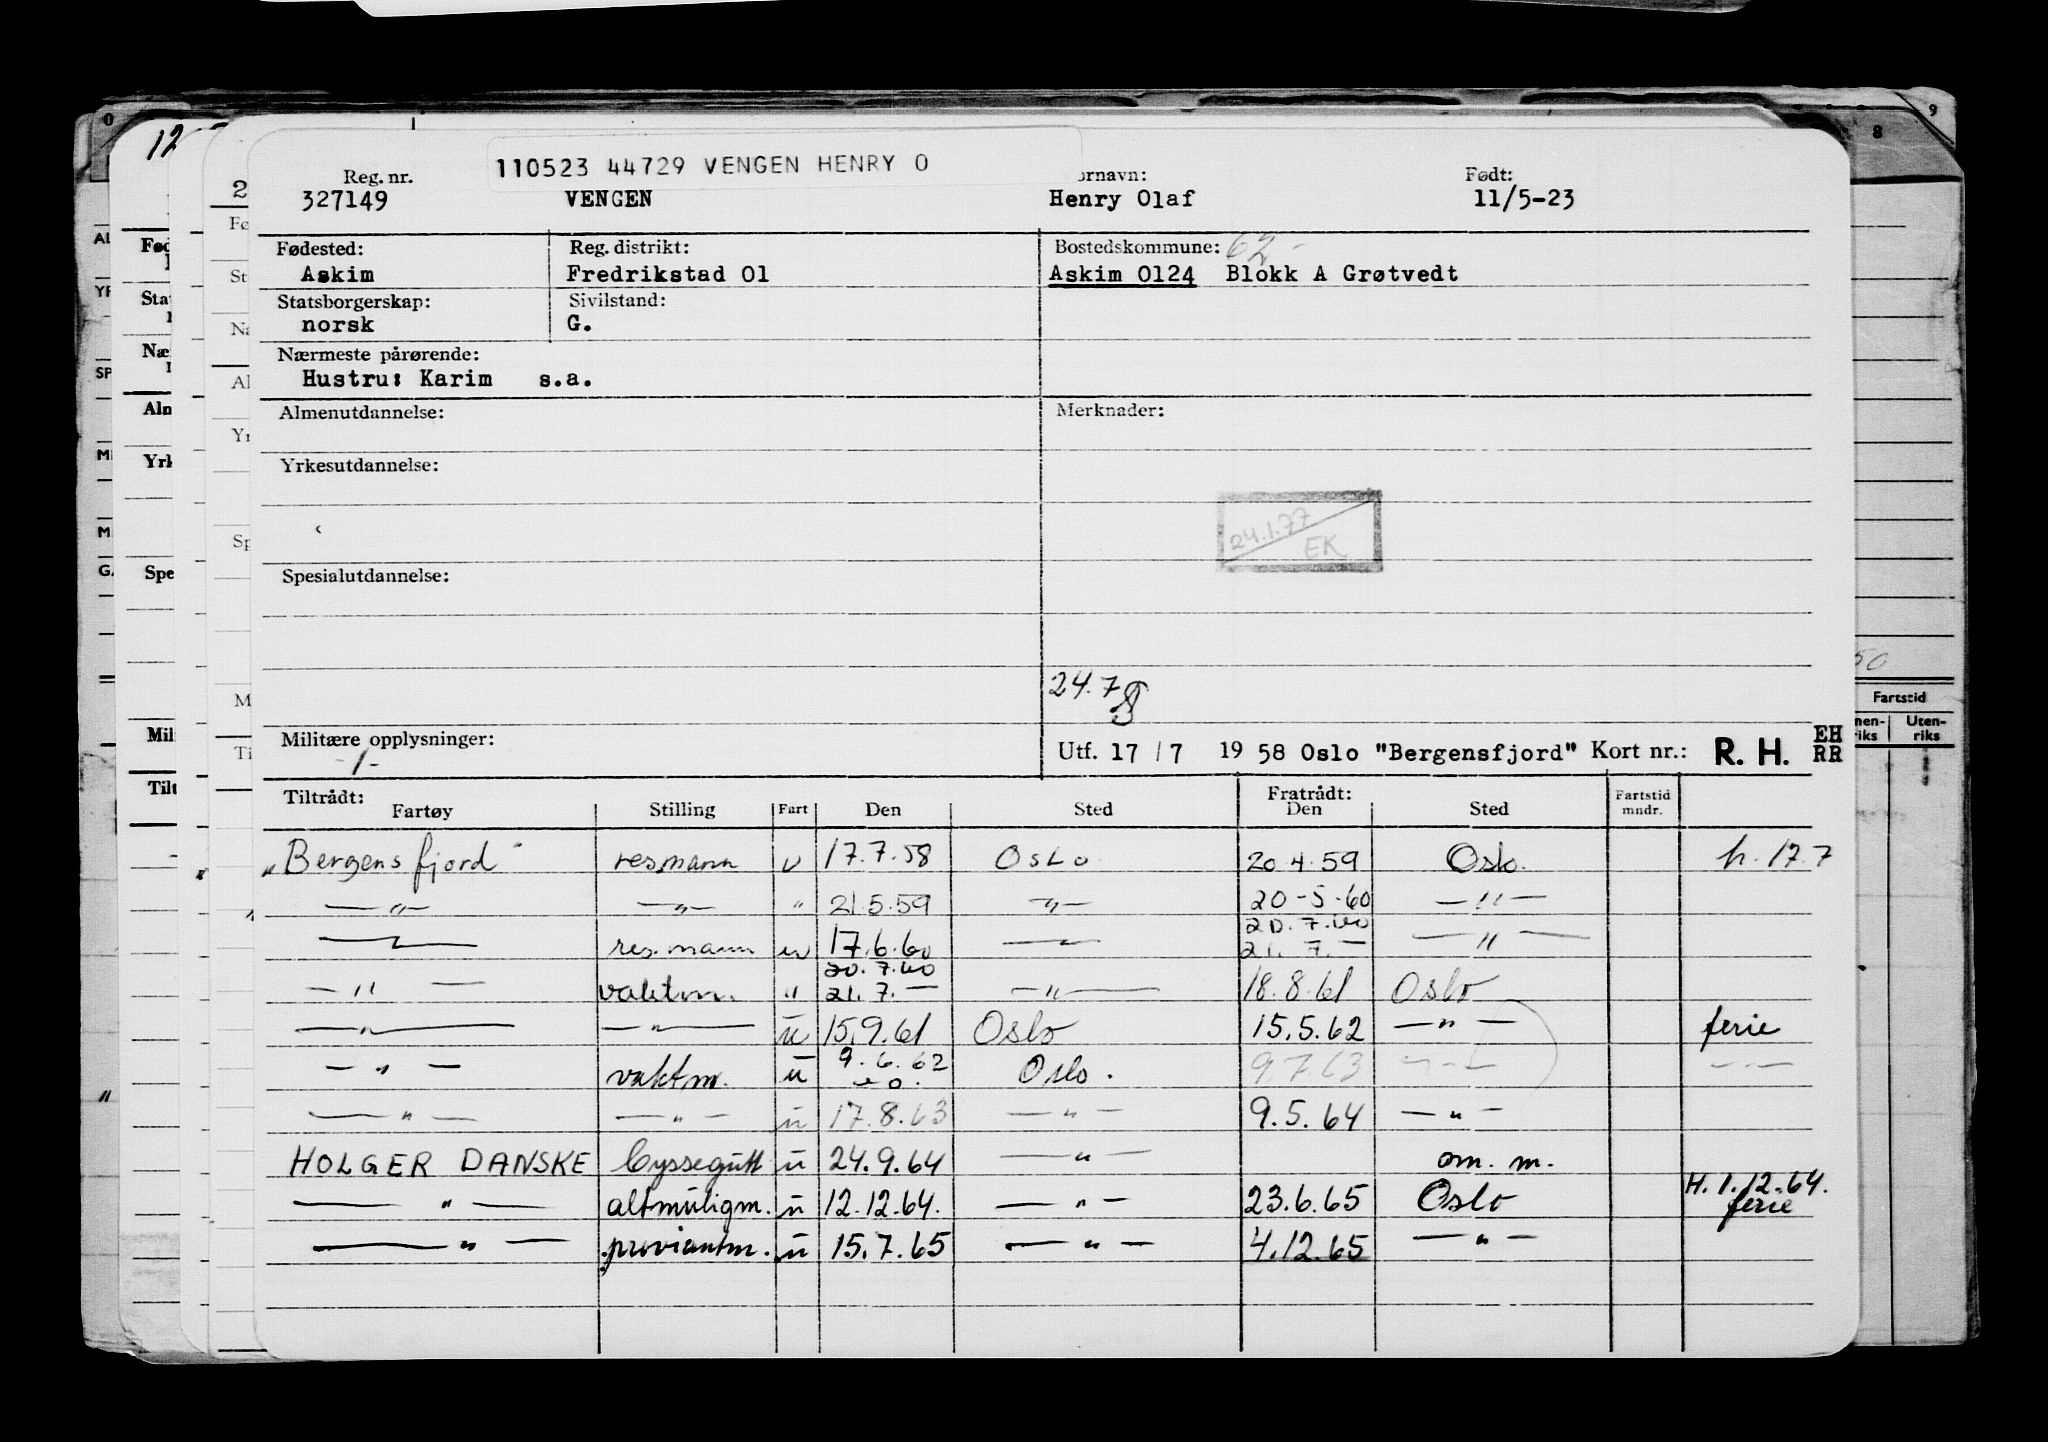 110523 44729 VENGEN HENRY O
Reg. nr. ornavn: Født:
327149 VENGEN Henry Olaf 11/5-23
Fødested: Reg. distrikt: Bostedskommune: 62-
Askim Fredrikstad 01 Askim 0124 Blokk A Grøtvedt
Statsborgerskap: Sivilstand:
norsk G.
Nærmeste pårørende:
Hustru: Karim s.a.
Almenutdannelse: Merknader:
Yrkesutdannelse:
24.1.77
EK
Spesialutdannelse:
24.7
Militære opplysninger:
-/-
Utf. 17 / 7 19 58 Oslo "Bergensfjord" Kort nr.: R. H. EH RR
Tiltrådt: Fratrådt:
Fartøy Stilling Fart Den Sted Den Sted Fartstid mndr.
"Bergensfjord" resmann u 17.7.58 Oslo 20.4.59 Oslo. h. 17.7
—"— —"— " 21.5.59 —"— 20-5-60 —"—
—"— res.mann u 17.6.60 —"— 20.7.60 —"—
21.7.—
20.7.60
—"— vaktm. " 21.7.— —"— 18.8.61 Oslo
—"— —"— u 15.9.61 Oslo 15.5.62 —"— ferie
—"— vaktm. u 9.6.62 Oslo. 9.7.63 —"— —"—
—"— —"— u 17.8.63 —"— 9.5.64 —"—
HOLGER DANSKE byssegutt u 24.9.64 —"— om. m.
—"— altmuligm. u 12.12.64. —"— 23.6.65 Oslo H. 1.12.64. ferie
—"— proviantm. u 15.7.65 —"— 4.12.65 —"—
Fartstid
Uten-
riks